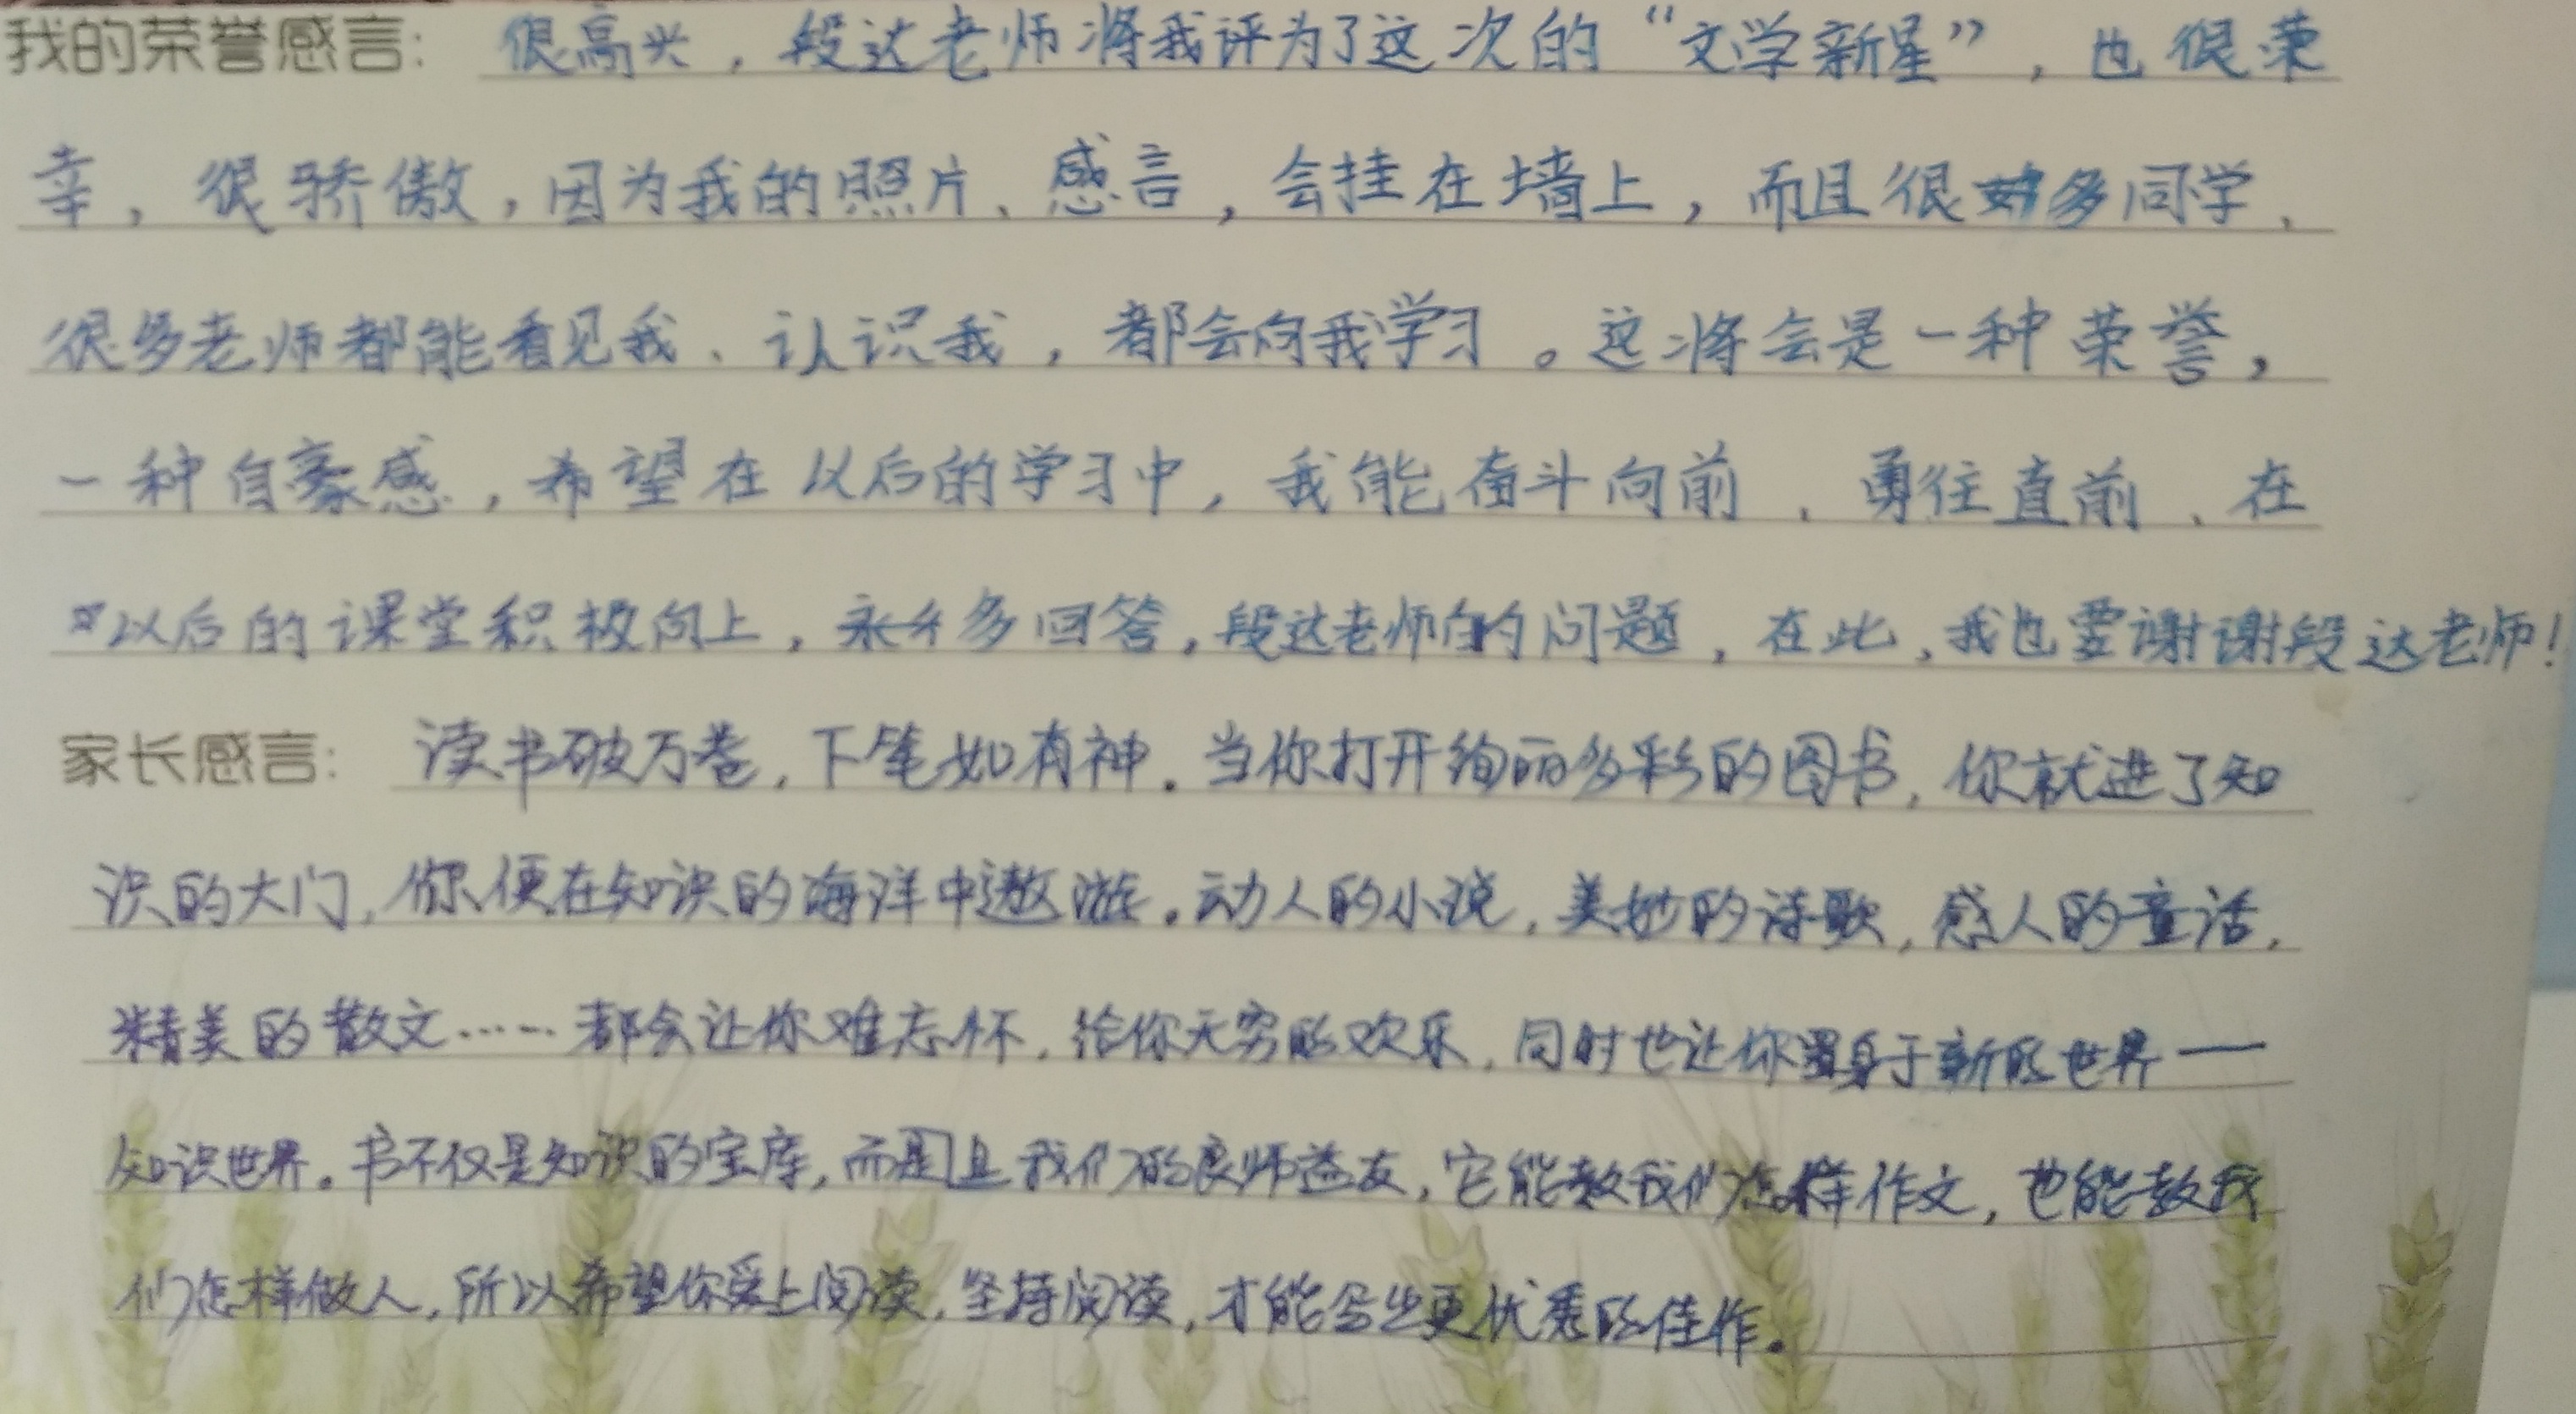 我的荣誉感言：很高兴，段达老师将我评为了这次的“文学新星”，也很荣
幸，很骄傲，因为我的照片、感言，会挂在墙上，而且很多同学、
很多老师都能看见我、认识我，都会向我学习。这将会是一种荣誉，
一种自豪感，希望在以后的学习中，我能奋斗向前、勇往直前、在
以后的课堂积极向上，多回答，段达老师的问题，在此，我也要谢谢段达老师！
家长感言：读书破万卷，下笔如有神。当你打开绚丽多彩的图书，你就进了知
识的大门，你便在知识的海洋中遨游。动人的小说，美妙的诗歌，感人的童话，
精美的散文……都会让你难忘怀，给你无穷的欢乐，同时也让你置身于新的世界——
知识世界。书不仅是知识的宝库，而且我们的良师益友，它能教我们怎样作文，也能教我
们怎样做人，所以希望你爱上阅读，坚持阅读，才能写出更优秀的佳作。